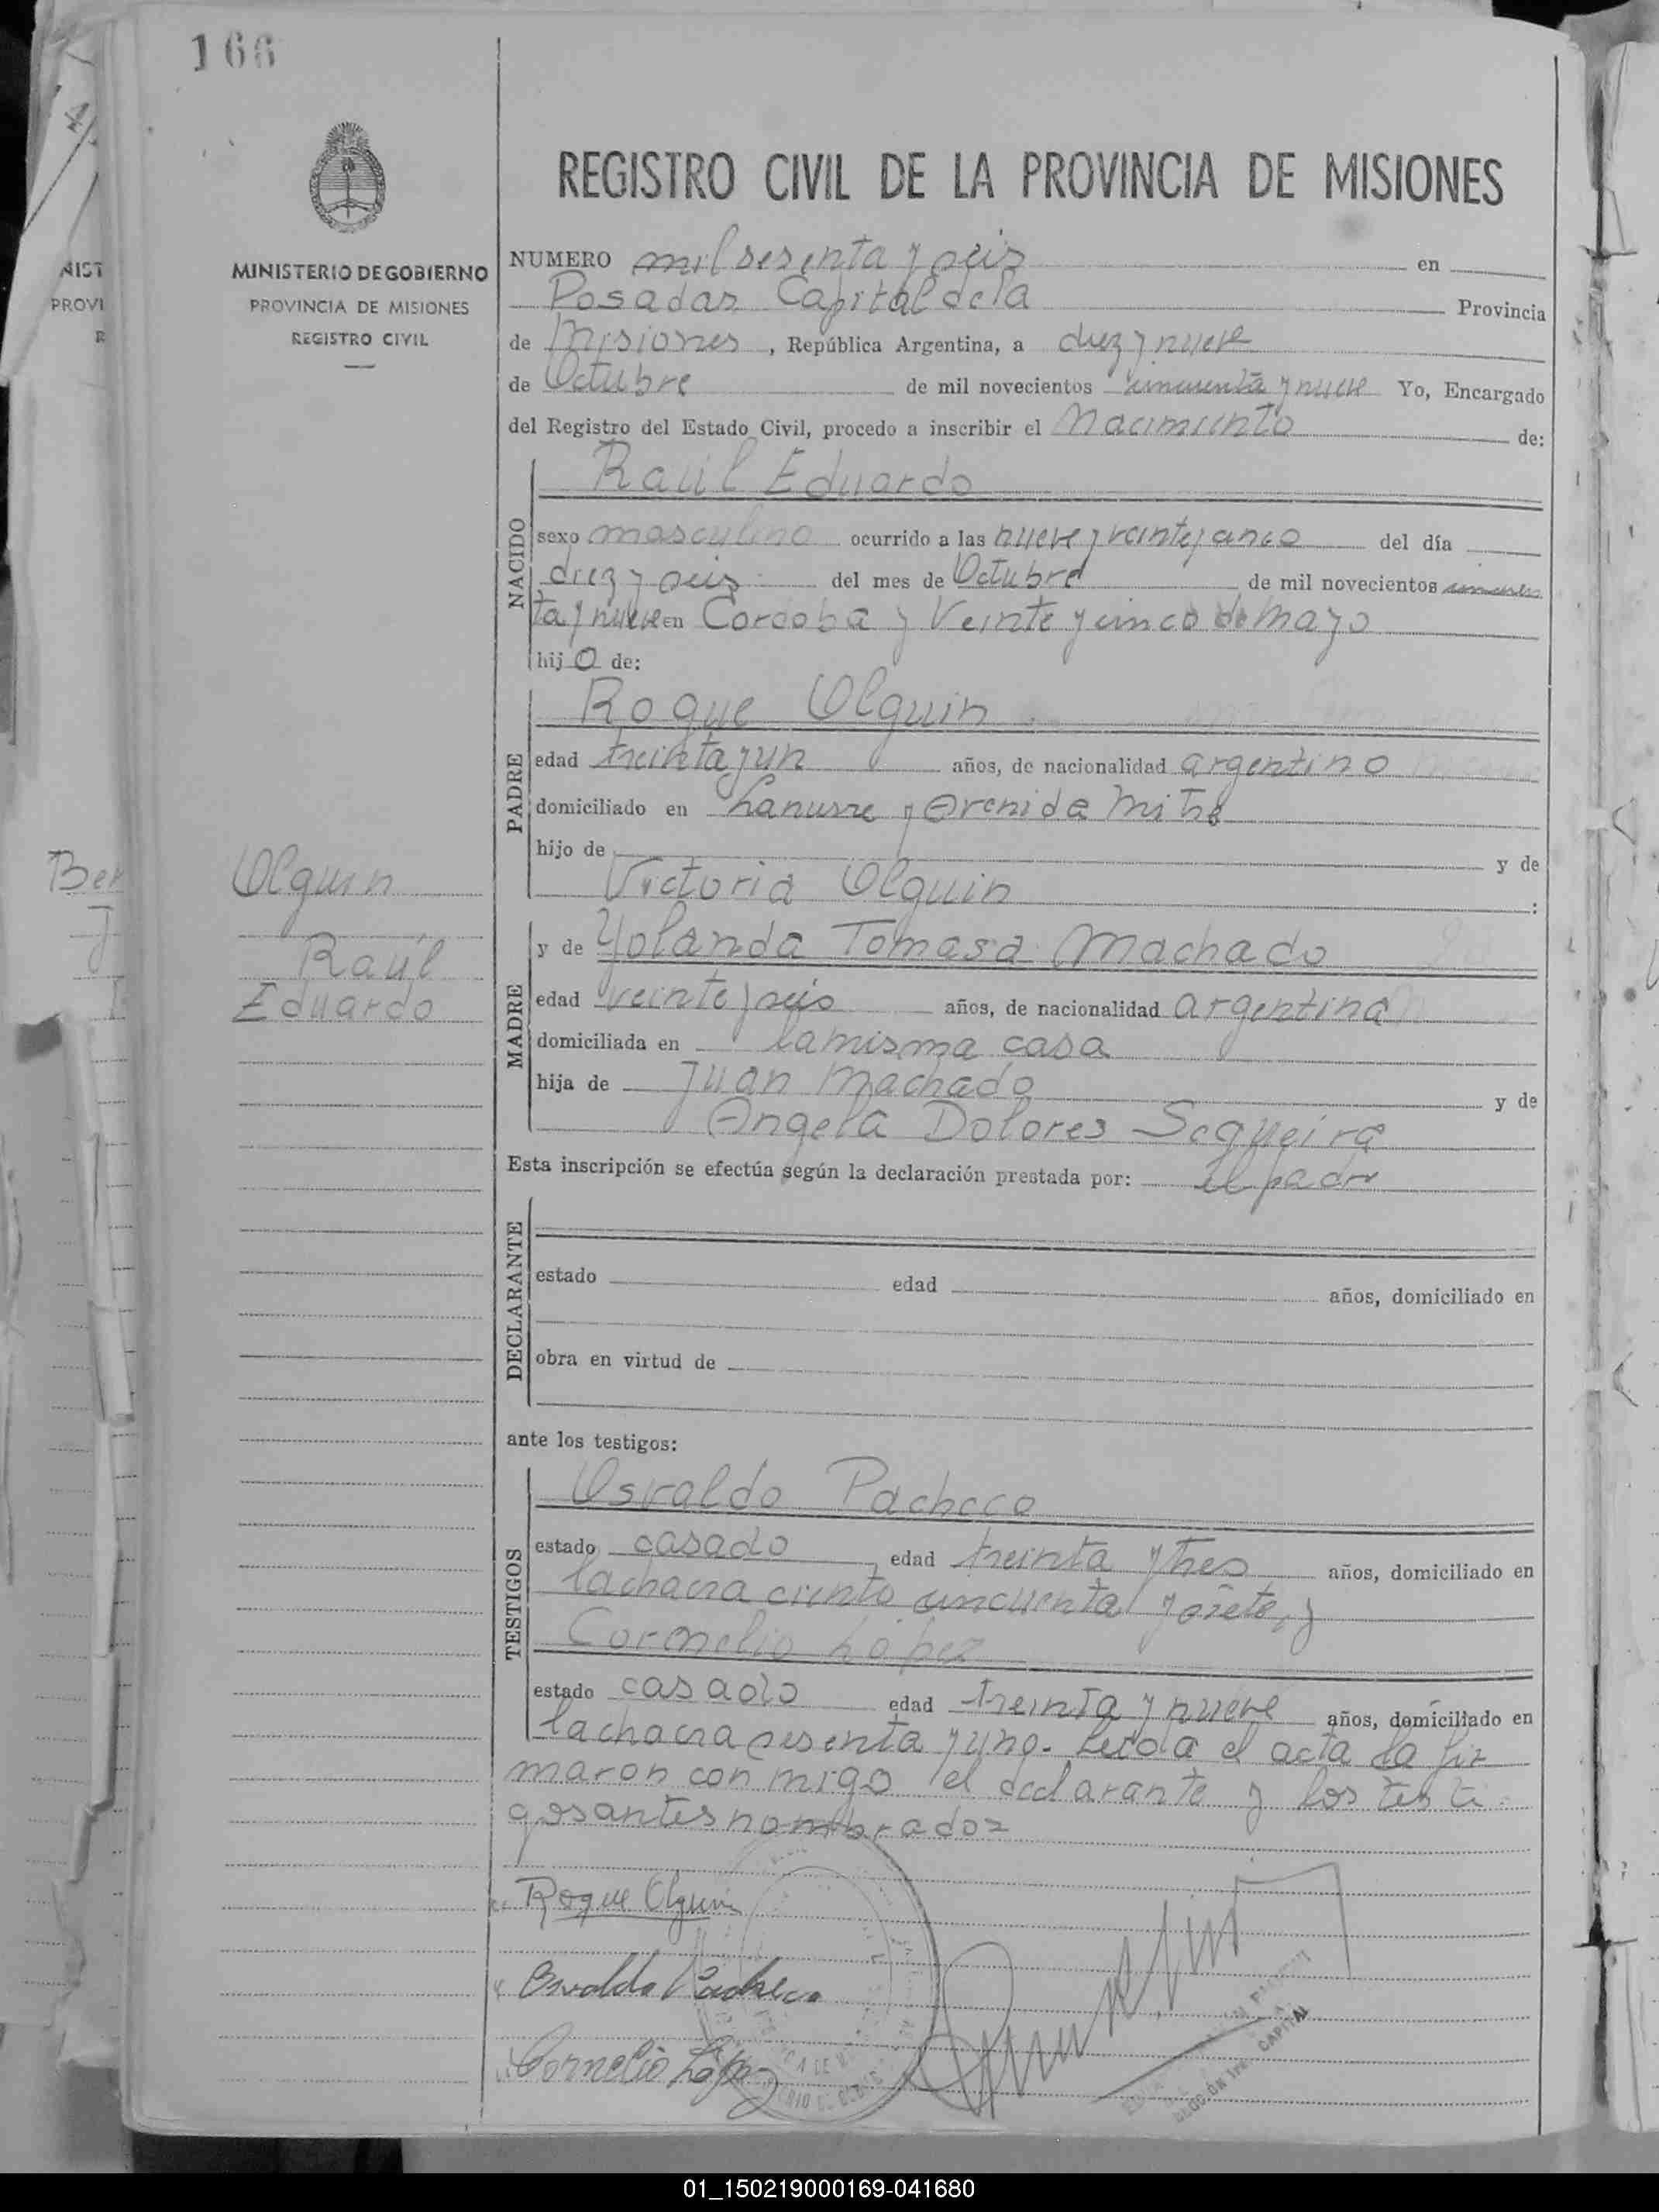 166
MINISTERIO DE GOBIERNO
PROVINCIA DE MISIONES
REGISTRO CIVIL
Olguin
Raúl
Eduardo
REGISTRO CIVIL DE LA PROVINCIA DE MISIONES
NUMERO mil sesenta y seis en
Posadas Capital de la Provincia
de Misiones, República Argentina, a diez y nueve
de Octubre de mil novecientos cincuenta y nueve Yo, Encargado
del Registro del Estado Civil, procedo a inscribir el Nacimiento de:
NACIDO
Raúl Eduardo
sexo masculino ocurrido a las nueve y veinte y cinco del día
diez y seis del mes de Octubre de mil novecientos cincuen
ta y nueve en Cordoba y Veinte y cinco de Mayo
hijo de:
PADRE
Roque Olguin
edad treinta y un años, de nacionalidad argentino
domiciliado en Lanusse y Avenida Mitre
hijo de y de
Victoria Olguin :
MADRE
y de Yolanda Tomasa Machado
edad veinte y seis años, de nacionalidad argentina
domiciliada en la misma casa
hija de Juan Machado y de
Angela Dolores Sequeira
Esta inscripción se efectúa según la declaración prestada por: el padre
DECLARANTE
estado edad años, domiciliado en
obra en virtud de
ante los testigos:
TESTIGOS
Osvaldo Pacheco
estado casado edad treinta y tres años, domiciliado en
la chacra ciento cincuenta y siete, y
Cornelio López
estado casado edad treinta y nueve años, domiciliado en
la chacra sesenta y uno.- Leida el acta la fir
maron conmigo el declarante y los testi
gos antes nombrados
Roque Olguin
Osvaldo Pacheco
Cornelio López
CAPITAL
01_150219000169-041680